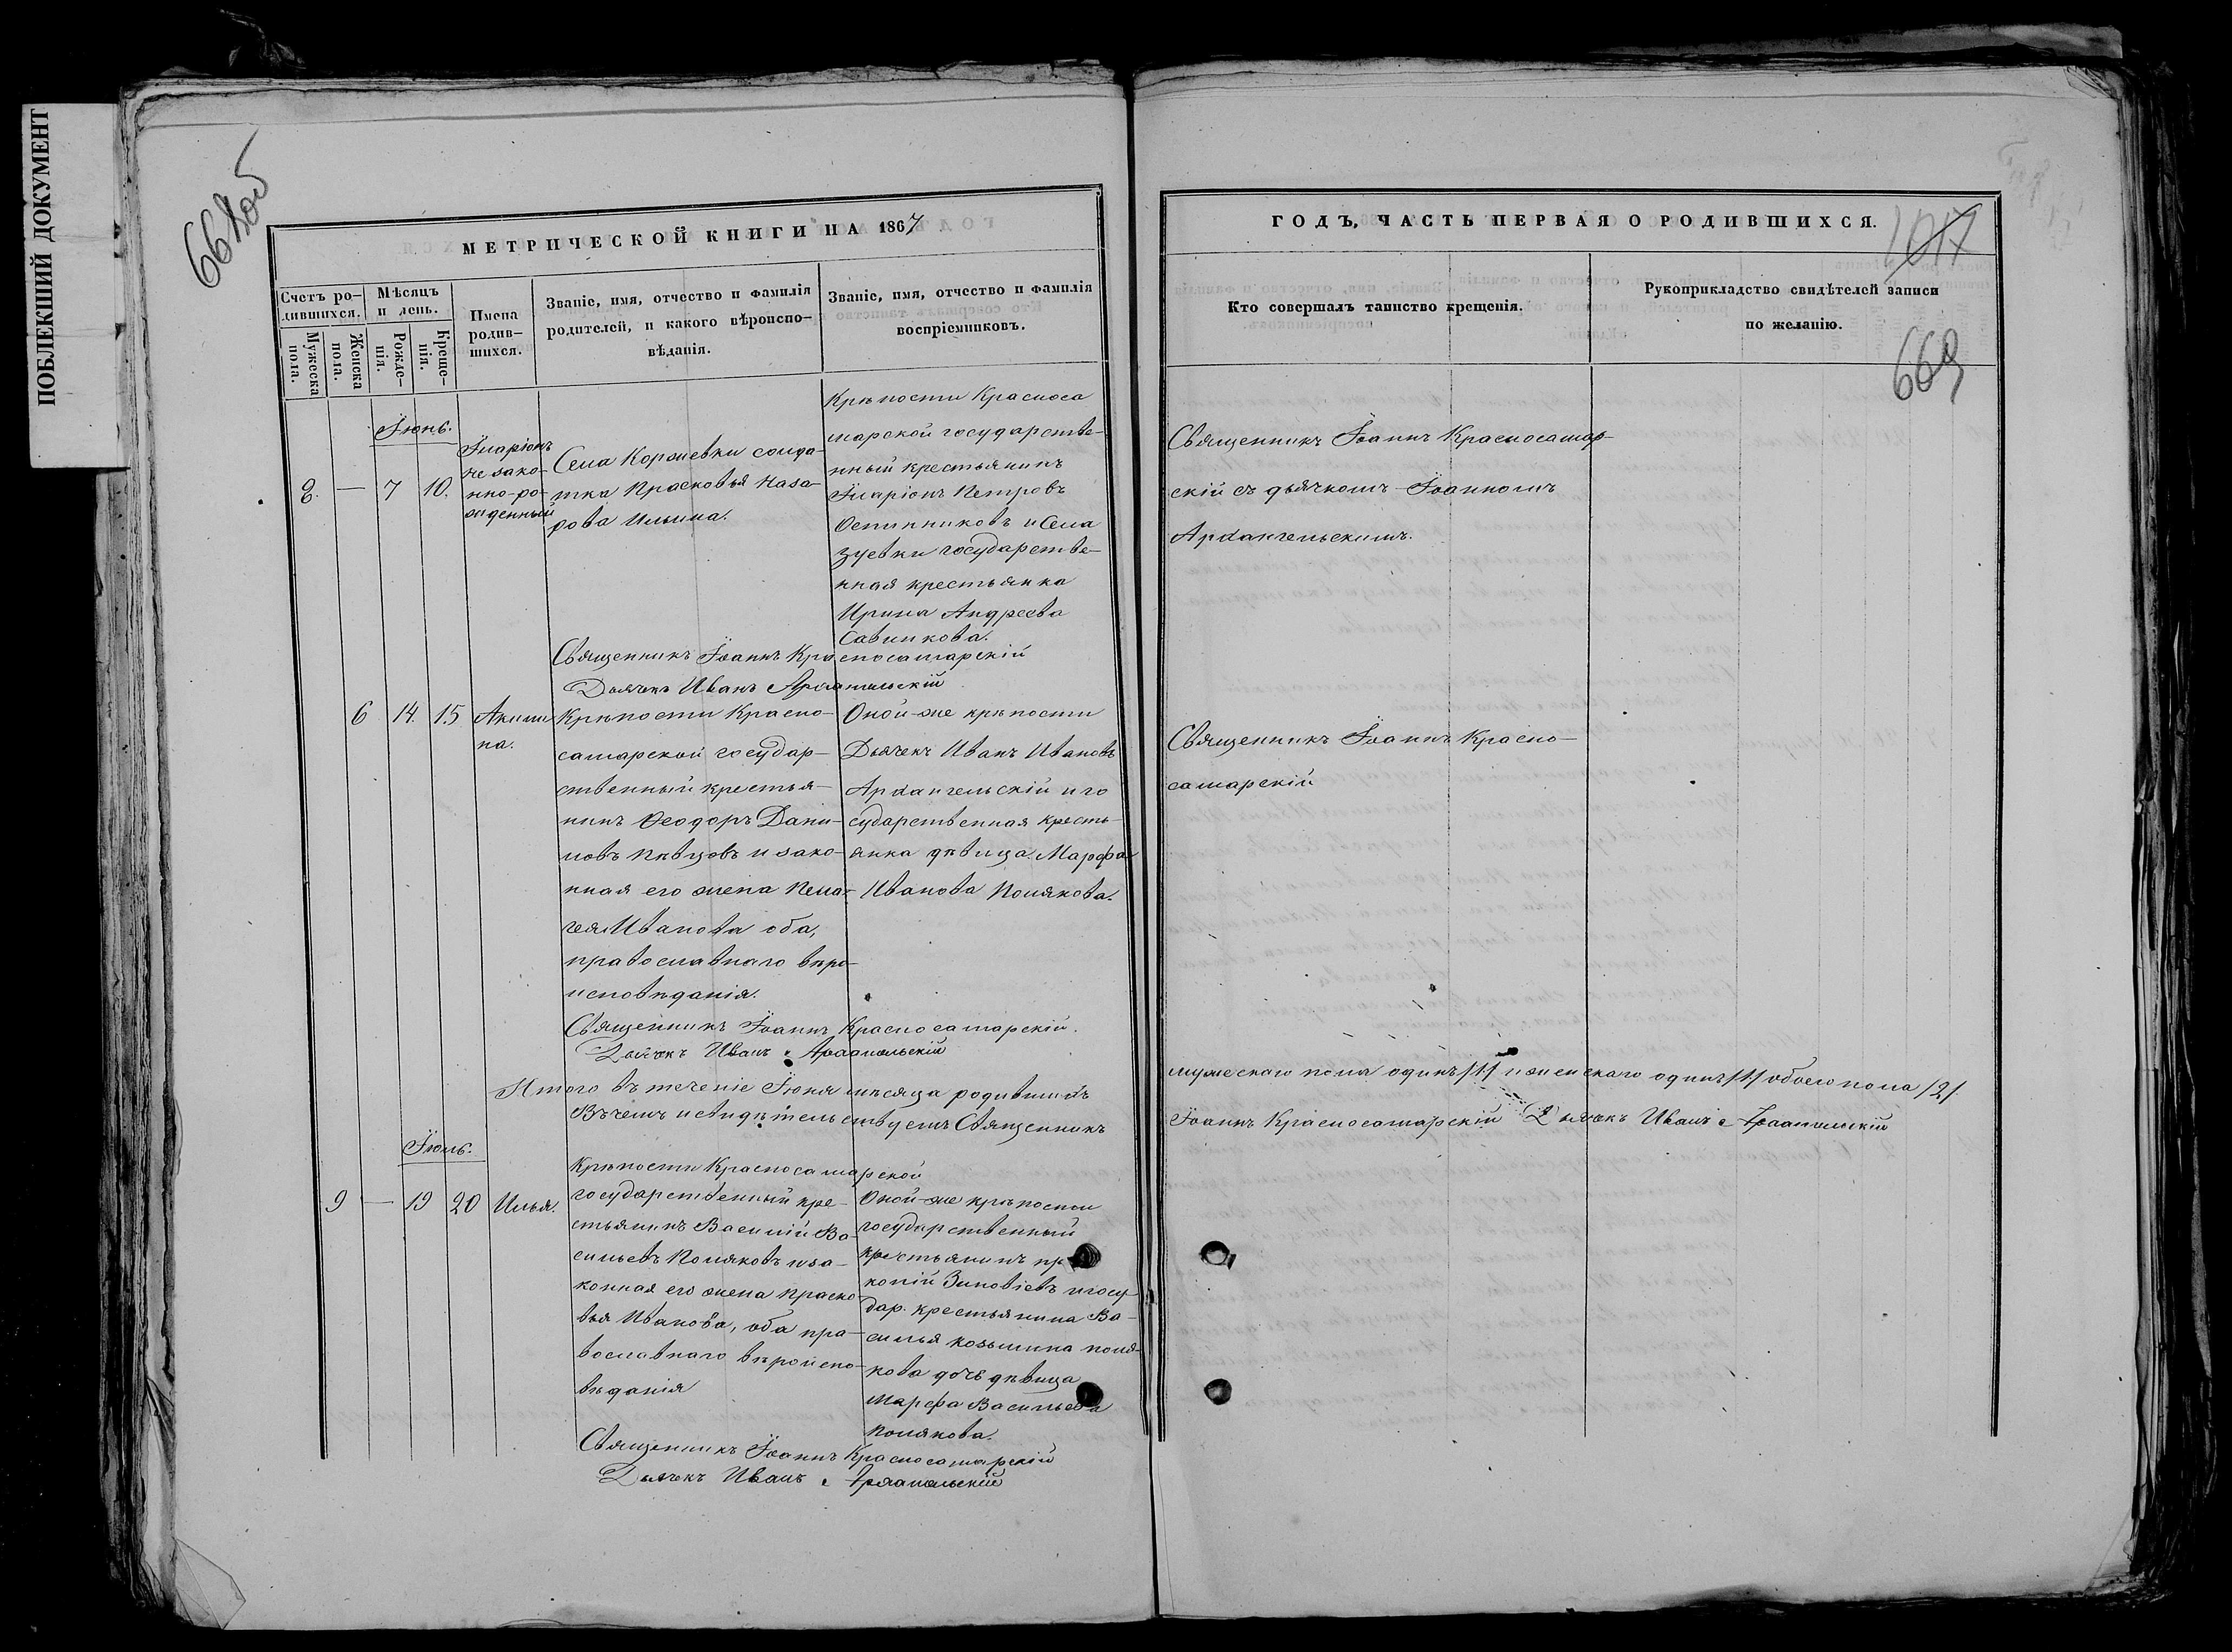 ПОБЛЕКШИЙ ДОКУМЕНТ
668об
МЕТРИЧЕСКОЙ КНИГИ НА 1867
Счетъ ро-
дившихся.
Мужеска
пола.
Женска
пола.
Мѣсяцъ
и день.
Рожде-
нія.
Креще-
нія.
Имена
родив-
шихся.
Званіе, имя, отчество и фамилія
родителей, и какого вѣроиспо-
вѣданія.
Званіе, имя, отчество и фамилія
воспріемниковъ.
Іюнь.
8. — 7 10.
Иларіонъ
незако-
нно-ро-
жденный
Села Кормевки солда-
тка Прасковья Наза-
рова Ильина.
Крѣпости Красноса
марской государстве-
нный крестьянинъ
Иларіонъ Петровъ
Осминниковъ и Села
Зуевки государстве-
нная крестьянка
Ирина Андреева
Савинкова.
Священникъ Іоаннъ Красносамарскій
Дьячекъ Иванъ Архангельскій
6 14. 15
Акили
на.
Крѣпости Красно-
самарской государ-
ственный крестья-
нинъ Ѳеодоръ Дани-
ловъ Пѣвцовъ и зако-
нная его жена Пела-
гея Иванова оба,
православнаго вѣро-
исповѣданія.
Оной-же крѣпости
Дьячекъ Иванъ Ивановъ
Архангельскій и го
сударственная кресть-
янка дѣвица Марѳа
Иванова Полякова.
Священникъ Іоаннъ Красносамарскій.
Дьячекъ Иванъ Архангельскій
Итого въ теченіе Іюня мѣсяца родившихъ
Въ чемъ и свидѣтельствуемъ Священникъ
Іюль.
9 — 19 20 Илья.
Крѣпости Красносамарской
государственный кре-
стьянинъ Василій Ва-
сильевъ Поляковъ и за-
конная его жена Праско-
вья Иванова, оба пра-
вославнаго вѣроиспо-
вѣданія
Оной-же крѣпости
государственный
крестьянинъ пр
копій Зиновіевъ и госу-
дар. крестьянина Ва-
силья Козьмина Поля-
кова дочь дѣвица
Марѳа Васильева
Полякова.
Священникъ Іоаннъ Красносамарскій
Дьячекъ Иванъ Архангельскій
ГОДЪ, ЧАСТЬ ПЕРВАЯ О РОДИВШИХСЯ.
1017
Кто совершалъ таинство крещенія.
Рукоприкладство свидѣтелей записи
по желанію.
669
Священникъ Іоаннъ Красносамар-
скій съ дьячкомъ Іоанномъ
Архангельскимъ.
Священникъ Іоаннъ Красно-
самарскій
мужескаго пола одинъ /1/ и женскаго одинъ /1/ обоего пола /2/.
Іоаннъ Красносамарскій Дьячекъ Иванъ Архангельскій